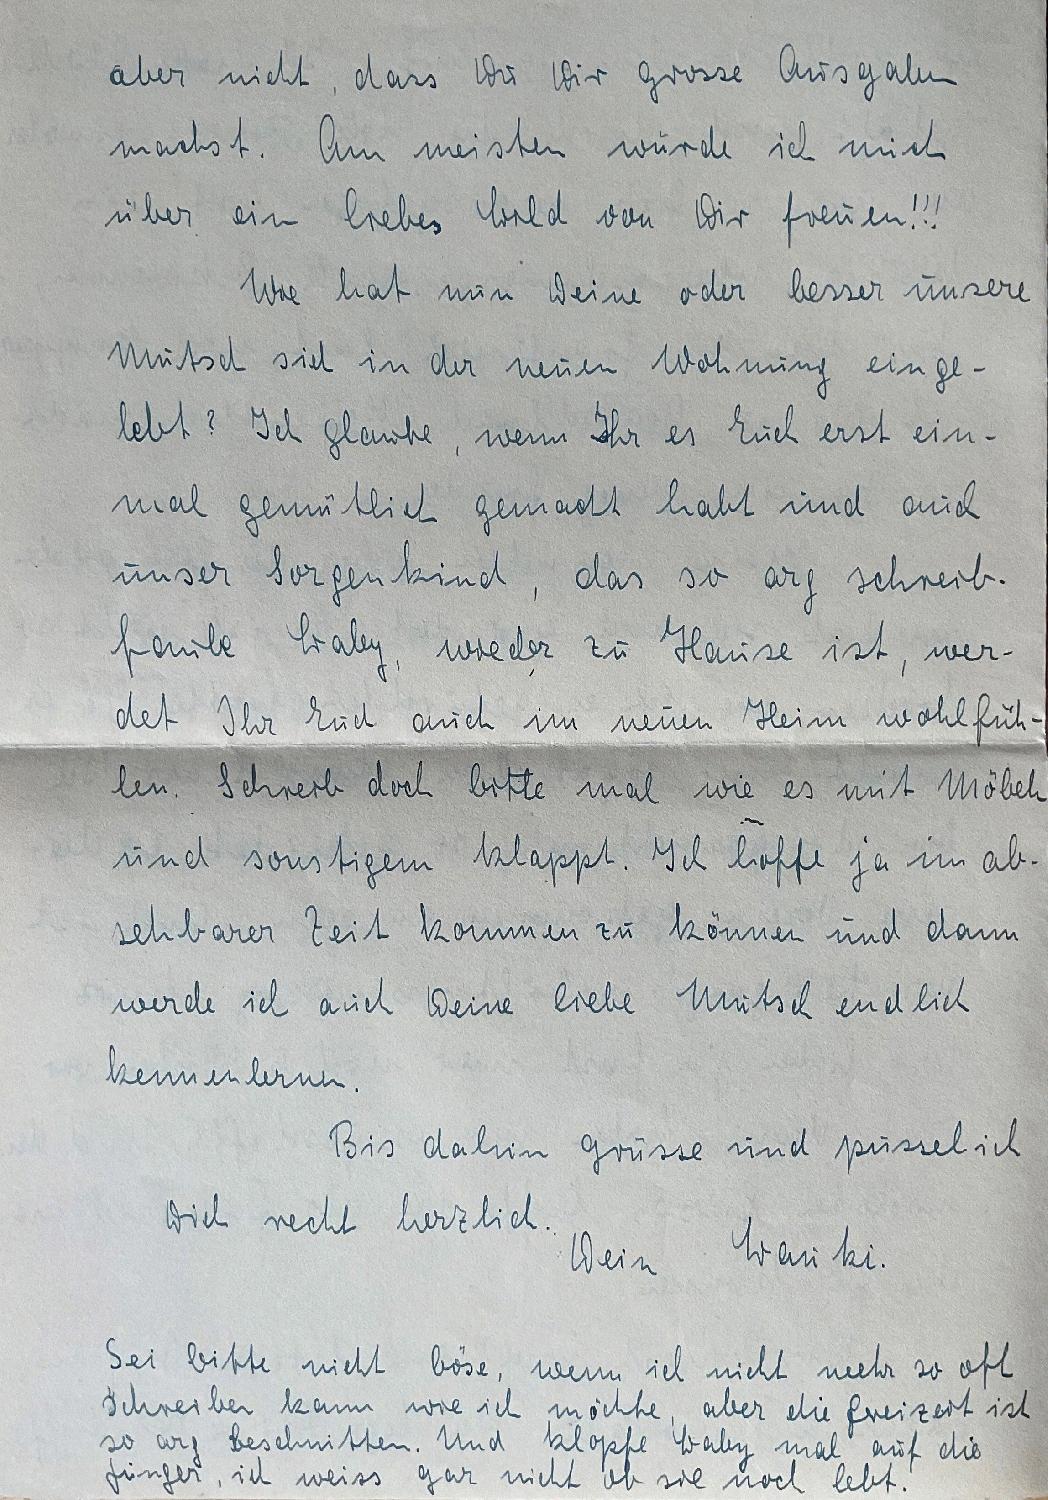 aber nicht, dass Du Dir grosse Ausgaben
machst. Am meisten würde ich mich
über ein liebes Bild von Dir freuen!!!
Wie hat nun Deine oder besser unsere
Mutsch sich in der neuen Wohnung einge-
lebt? Ich glaube, wenn Ihr es Euch erst ein-
mal gemütlich gemacht habt und auch
unser Sorgenkind, das so arg schreib-
faule Baby, wieder zu Hause ist, wer-
det Ihr Euch auch im neuen Heim wohlfüh-
len. Schreib doch bitte mal wie es mit Möbeln
und sonstigem klappt. Ich hoffe ja in ab-
sehbarer Zeit kommen zu können und dann
werde ich auch Deine liebe Mutsch endlich
kennenlernen.
Bis dahin grüsse und pussel ich
Dich recht herzlich.
Dein Bauki.
Sei bitte nicht böse, wenn ich nicht mehr so oft
schreiben kann wie ich möchte, aber die Freizeit ist
so arg beschnitten. Und klopfe Baby mal auf die
Finger, ich weiss gar nicht ob sie noch lebt.